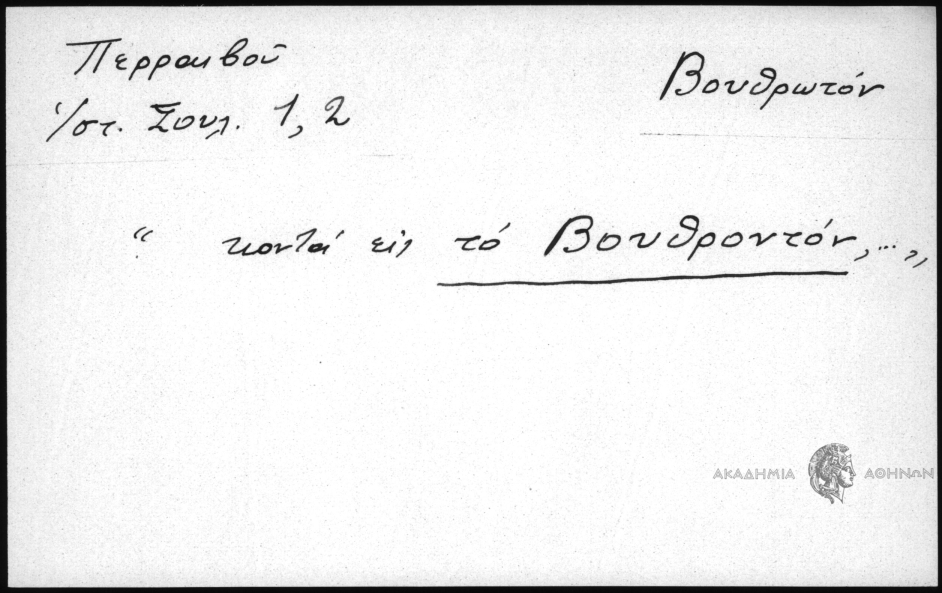 Περραιβοῦ
Βουθρωτόν
Ἱστ. Σουλ. 1, 2
“ κοντά εἰς τό Βουθροντόν, ... „
ΑΚΑΔΗΜΙΑ ΑΘΗΝΩΝ